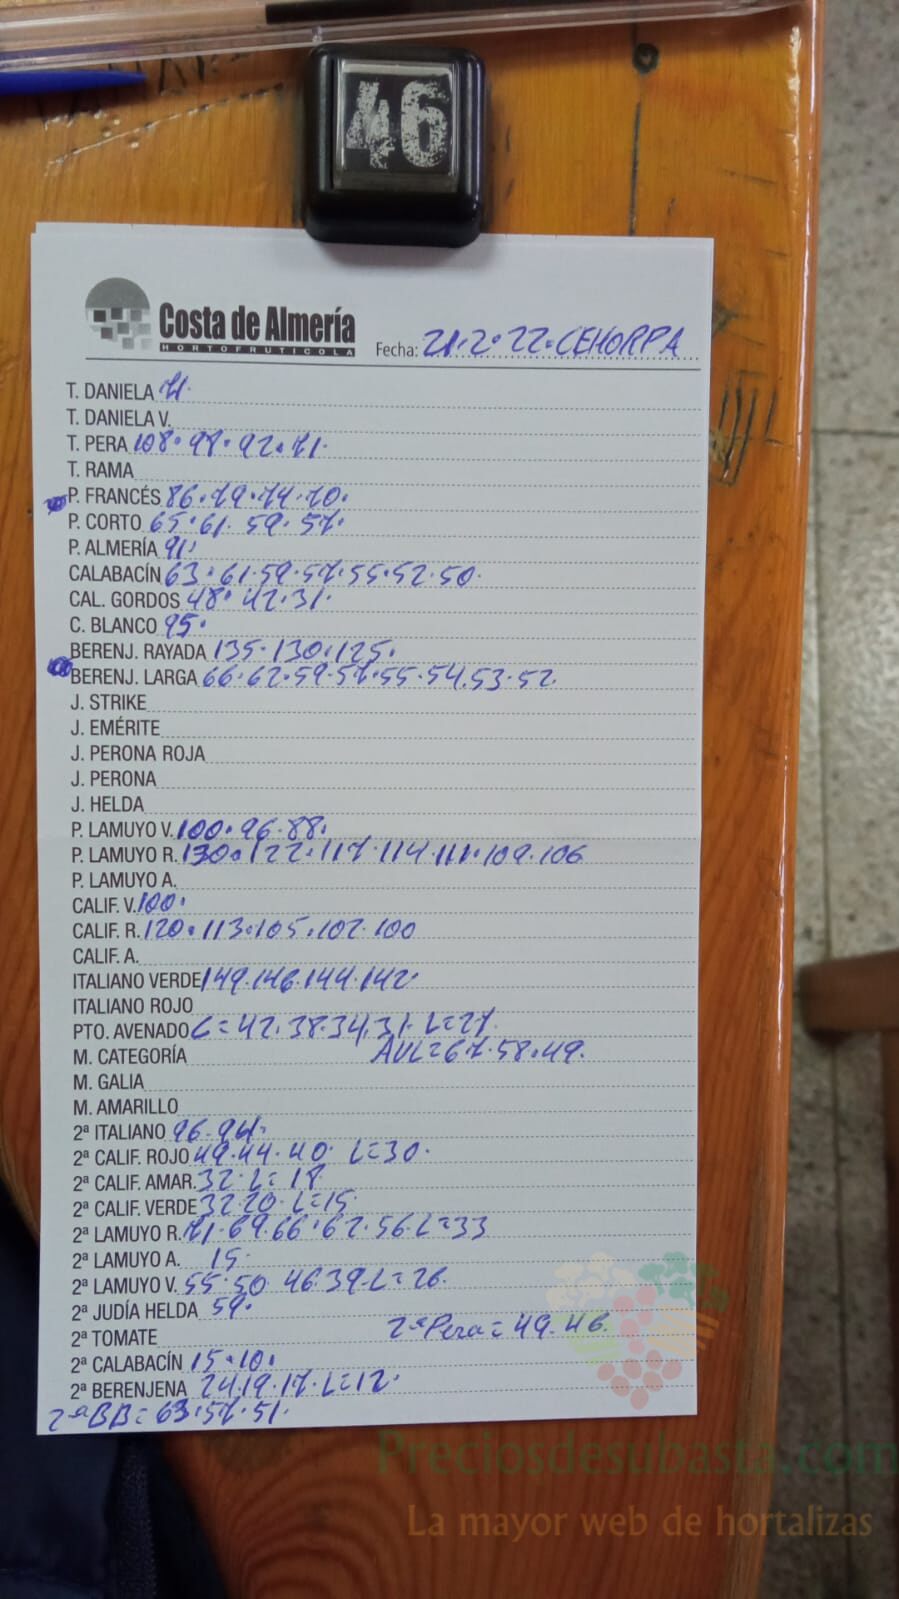 46
Costa de Almería
HORTOFRUTICOLA
Fecha: 21.2.22.CEHORPA
T. DANIELA 71.
T. DANIELA V.
T. PERA 108.98.92.71.
T. RAMA
P. FRANCÉS 86.79.74.70.
P. CORTO 65.61.59.57.
P. ALMERÍA 91.
CALABACÍN 63.61.59.57.55.52.50.
CAL. GORDOS 48.42.31.
C. BLANCO 95.
BERENJ. RAYADA 135.130.125.
BERENJ. LARGA 66.62.59.57.55.54.53.52.
J. STRIKE
J. EMÉRITE
J. PERONA ROJA
J. PERONA
J. HELDA
P. LAMUYO V. 100.96.88.
P. LAMUYO R. 130.122.117.114.111.109.106
P. LAMUYO A.
CALIF. V. 100.
CALIF. R. 120.113.105.102.100
CALIF. A.
ITALIANO VERDE 149.146.144.142
ITALIANO ROJO
PTO. AVENADO C=42.38.34.31. L=27.
M. CATEGORÍA AVL=67.58.49.
M. GALIA
M. AMARILLO
2ª ITALIANO 96.94.
2ª CALIF. ROJO 49.44.40. L=30.
2ª CALIF. AMAR. 32. L=18
2ª CALIF. VERDE 32.20. L=15
2ª LAMUYO R. 71.69.66.62.56. L=33
2ª LAMUYO A. 15
2ª LAMUYO V. 55.50 46.39. L=26.
2ª JUDÍA HELDA 59.
2ª TOMATE 2ªPera=49.46.
2ª CALABACÍN 15.10.
2ª BERENJENA 24.19.17. L=12.
2ªBB=63.57.51.
Preciosdesubasta.com
La mayor web de hortalizas